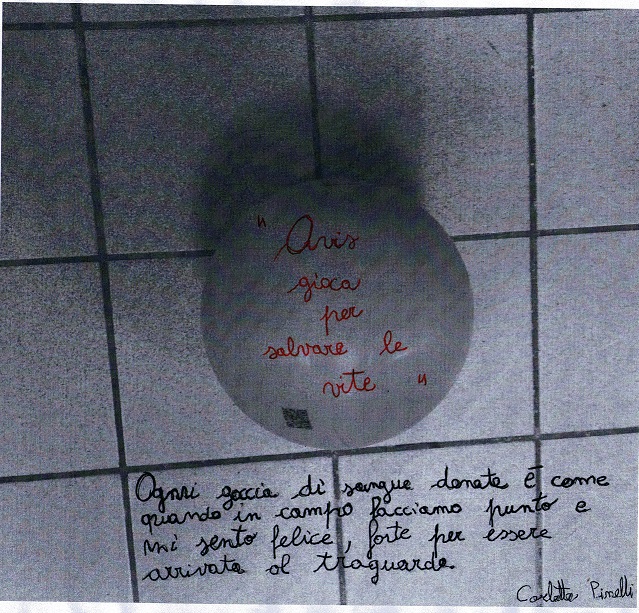 " Avis
gioca
per
salvare le
vite "
Ogni goccia di sangue donata è come
quando in campo facciamo punto e
mi sento felice, forte per essere
arrivata al traguardo.
Carlotta Pinelli